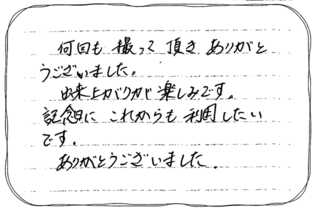 何回も 撮って 頂き ありがと
うございました。
出来上がりが 楽しみです。
記念に これからも 利用したい
です。
ありがとうございました.